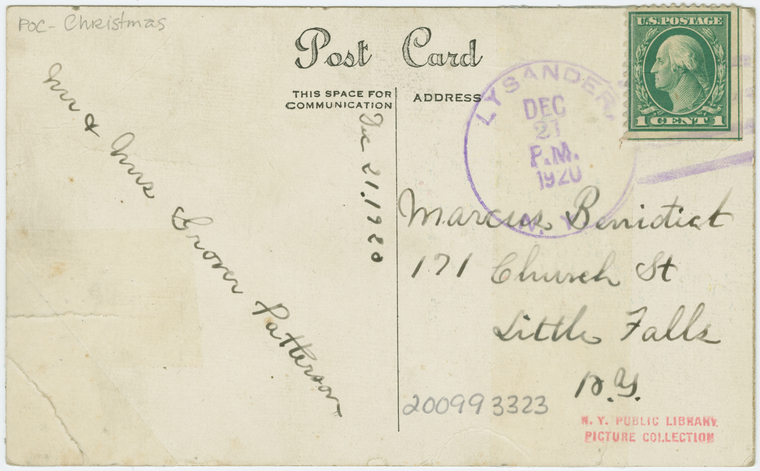 POC - Christmas
Post Card
THIS SPACE FOR
COMMUNICATION
ADDRESS
U.S. POSTAGE
1 CENT 1
LYSANDER,
DEC
21
P.M.
1920
N.Y.
Mr & Mrs Grover Patterson
Dec 21, 1920
Marcus Benidict
171 Church St
Little Falls
N.Y.
200993323
N. Y. PUBLIC LIBRARY
PICTURE COLLECTION